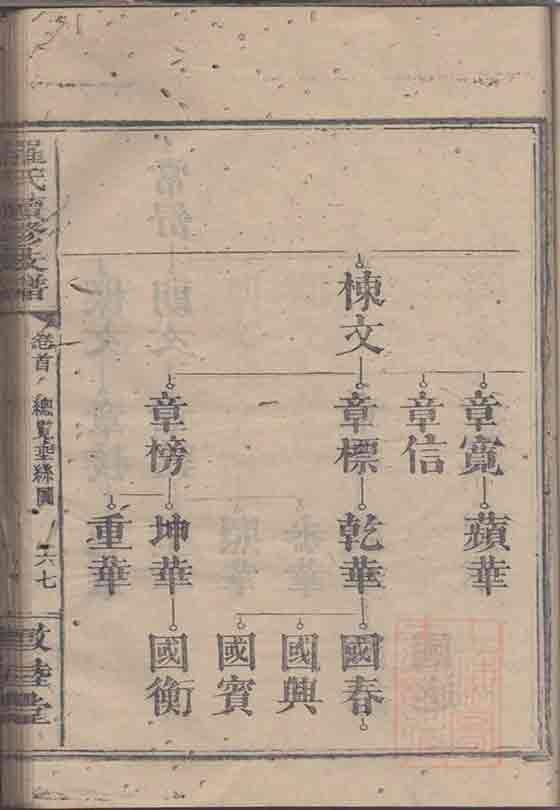 棟文
章寬
章信
章標
章榜
蘋華
乾華
坤華
重華
國春
國興
國賓
國衡
羅氏續修支譜
卷首
總覽垂絲圖
六七
敦睦堂